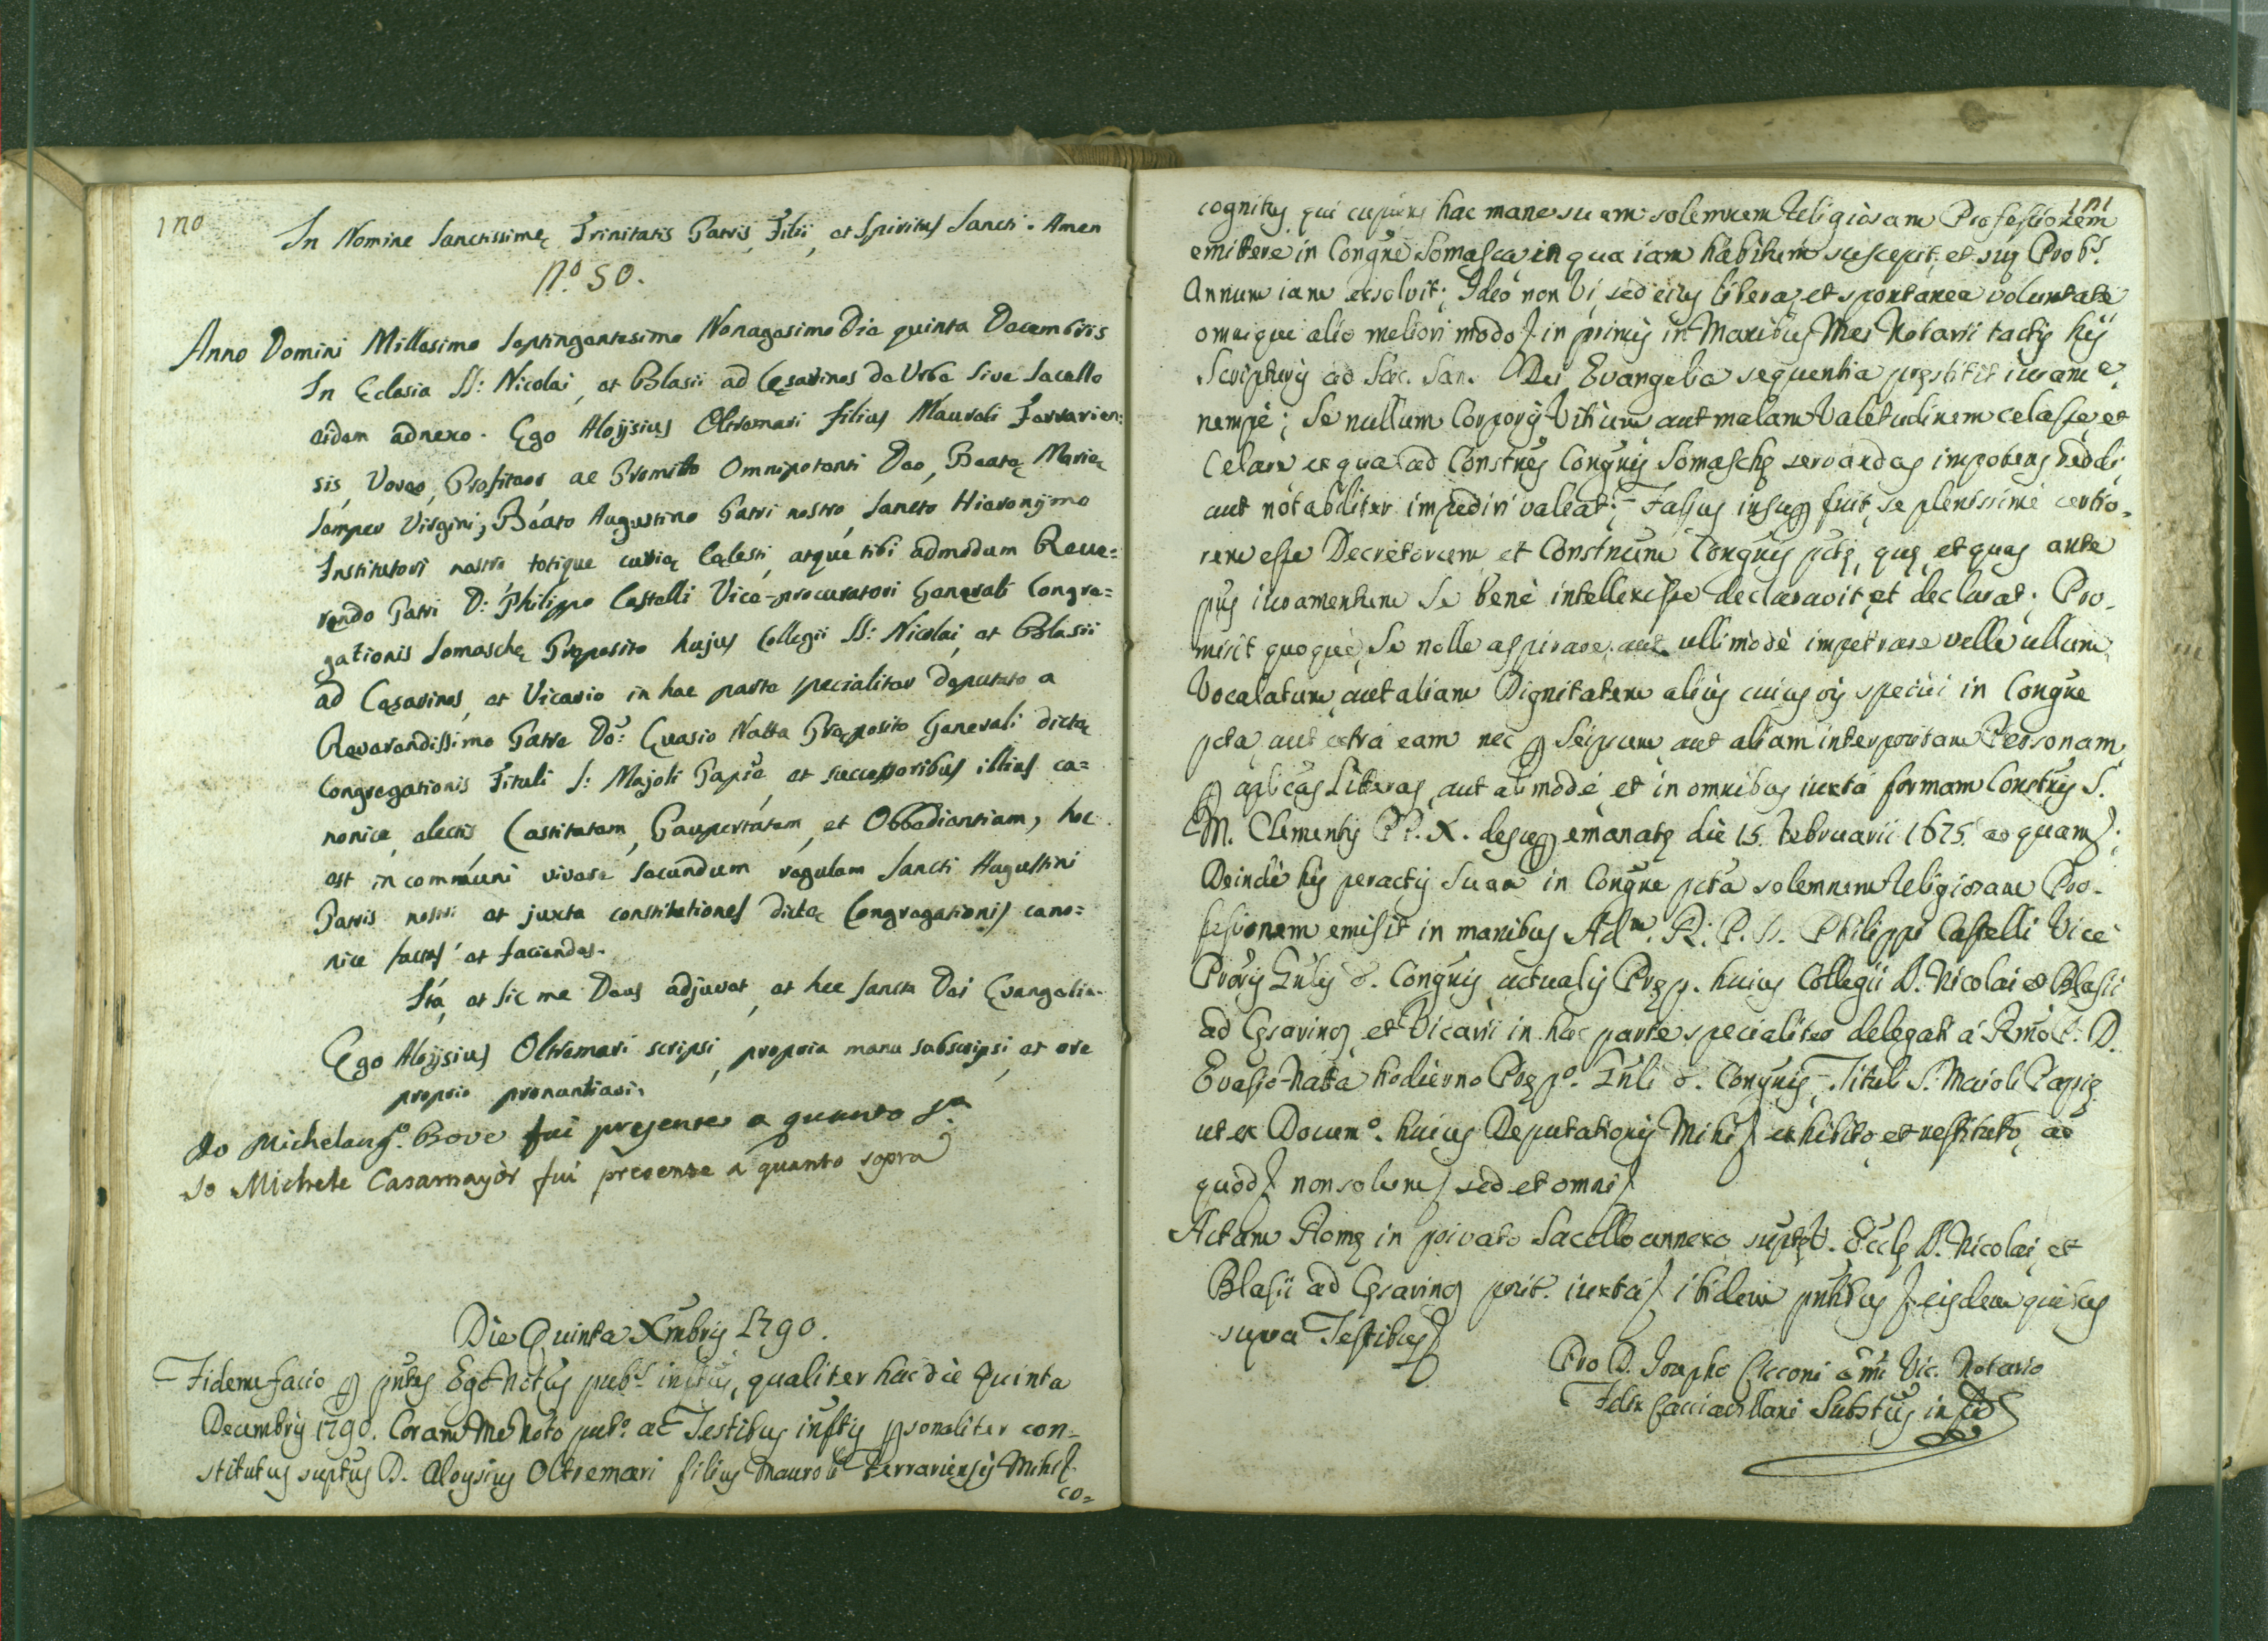 170
In Nomine Sanctissimę Trinitatis Patris, Filii, et Spiritus Sancti. Amen
N.º 50.
Anno Domini Millesimo Septingentesimo Nonagesimo Die quinta Decembris
In Eclesia SS: Nicolai, et Blasii ad Cęsarinos de Urbe sive Sacello
eidem adnexo. Ego Aloÿsius Oltremari filius Mauroli Ferrarien:
sis, Voveo, Profiteor ac Promitto Omnipotenti Deo, Beatę Marię
semper Virgini, Beato Augustino Patri nostro, Sancto Hieronÿmo
Institutori nostro totique curię Cęlesti, atque tibi admodum Reve=
rendo Patri D: Philippo Castelli Vice-procuratori Generali Congre=
gationis Somaschę Pręposito hujus Collegii SS: Nicolai, et Blasii
ad Cęsarinos, et Vicario in hac parte specialiter deputato a
Reverendissimo Patre Do: Evasio Natta Pręposito Generali dictę
Congregationis Tituli S: Majoli Papię, et successoribus illius ca=
nonice electis Castitatem, Paupertatem, et Obbedientiam, hoc
est in communi vivere secundum regulam Sancti Augustini
Patris nostri et juxta constitutiones dictę Congregationis cano=
nice factas et faciendas.
Ita, et sic me Deus adjuvet, et hec sancta Dei Evangelia.
Ego Aloÿsius Oltremari scripsi, propria manu subscripsi, et ore
proprio pronuntiavi.
Io Michelang.º Bove fui presente a quanto s.ª
Io Michele Casamayor fui presente a quanto sopra
Die Quinta Xmbris 1790.
Fidem facio p pntes Ego Notus pub.s inftus, qualiter hac die Quinta
Decembris 1790. Coram Me Noto pub.º ac Testibus inftis psonaliter con=
stitutus suptus D. Aloysius Oltremari filius Mauroli Ferrariensis Mihi
co=
171
cognitus qui cupiens hac mane suam solemnem Religiosam Professionem
emittere in Congne Somasca in qua iam habitum suscepit, et sui Prob.s
Annum iam exsolvit; Ideo non vi, sed eius libera, et spontanea voluntate
omnique alio meliori modo in primis in Manibus Mei Notarii tactis his
Scripturis ad Sac. San. Dei Evangelia sequentia pręstitit iuram.e
nempè; Se nullum Corporis Vitium aut malam Valetudinem celasse, et
Celare ex qua ad Constnes Congnis Somaschę servandas impotens reddi
aut notabiliter impediri valeat; Fassus insup fuit, se plenissimè certio-
rem esse Decretorum et Constnum Congnis pctę, quę, et quas ante
pns iuramentum se benè intellexisse declaravit, et declarat; Pro-
misit quoquè, Se nolle aspirare, aut ullimodè impetrare velle ullum
Vocalatum, aut aliam Dignitatem alius cuiusvis speciei in Congne
pcta aut extra eam nec p seipsum aut aliam interpositam Personam
p aplicas Literas, aut al modè, et in omnibus iuxta formam Constnis S.
M. Clementis PP. X. desup emanatę die 15. Februarii 1675. ad quam;
Deindè his peractis suam in Congne pcta solemnem Religiosam Pro-
fessionem emisit in manibus Ad.m R. P. D. Philippi Castelli Vice
Proris Gnlis d. Congnis, actualis Pręp. huius Collegii SS. Nicolai & Blasii
ad Cęsarinos, et Vicarii in hac parte specialiter delegati à Rmo P. D.
Evasio Natta hodierno Pręp.º Gnli d. Congnis Tituli S. Maioli Papię
ut ex Docum.º huius Deputationis Mihi exhibito, et restituto, ad
quod non solum sed et omni
Actum Romę in privato Sacello annexo suptę V. Eccłę SS. Nicolai, et
Blasii ad Cęsarinos posit. iuxta ibidem pntibus eisdem quibus
supra Testibus
Pro D. Josepho Cicconi Vic. Notario
Felix Cacciavillani Substus in Fid